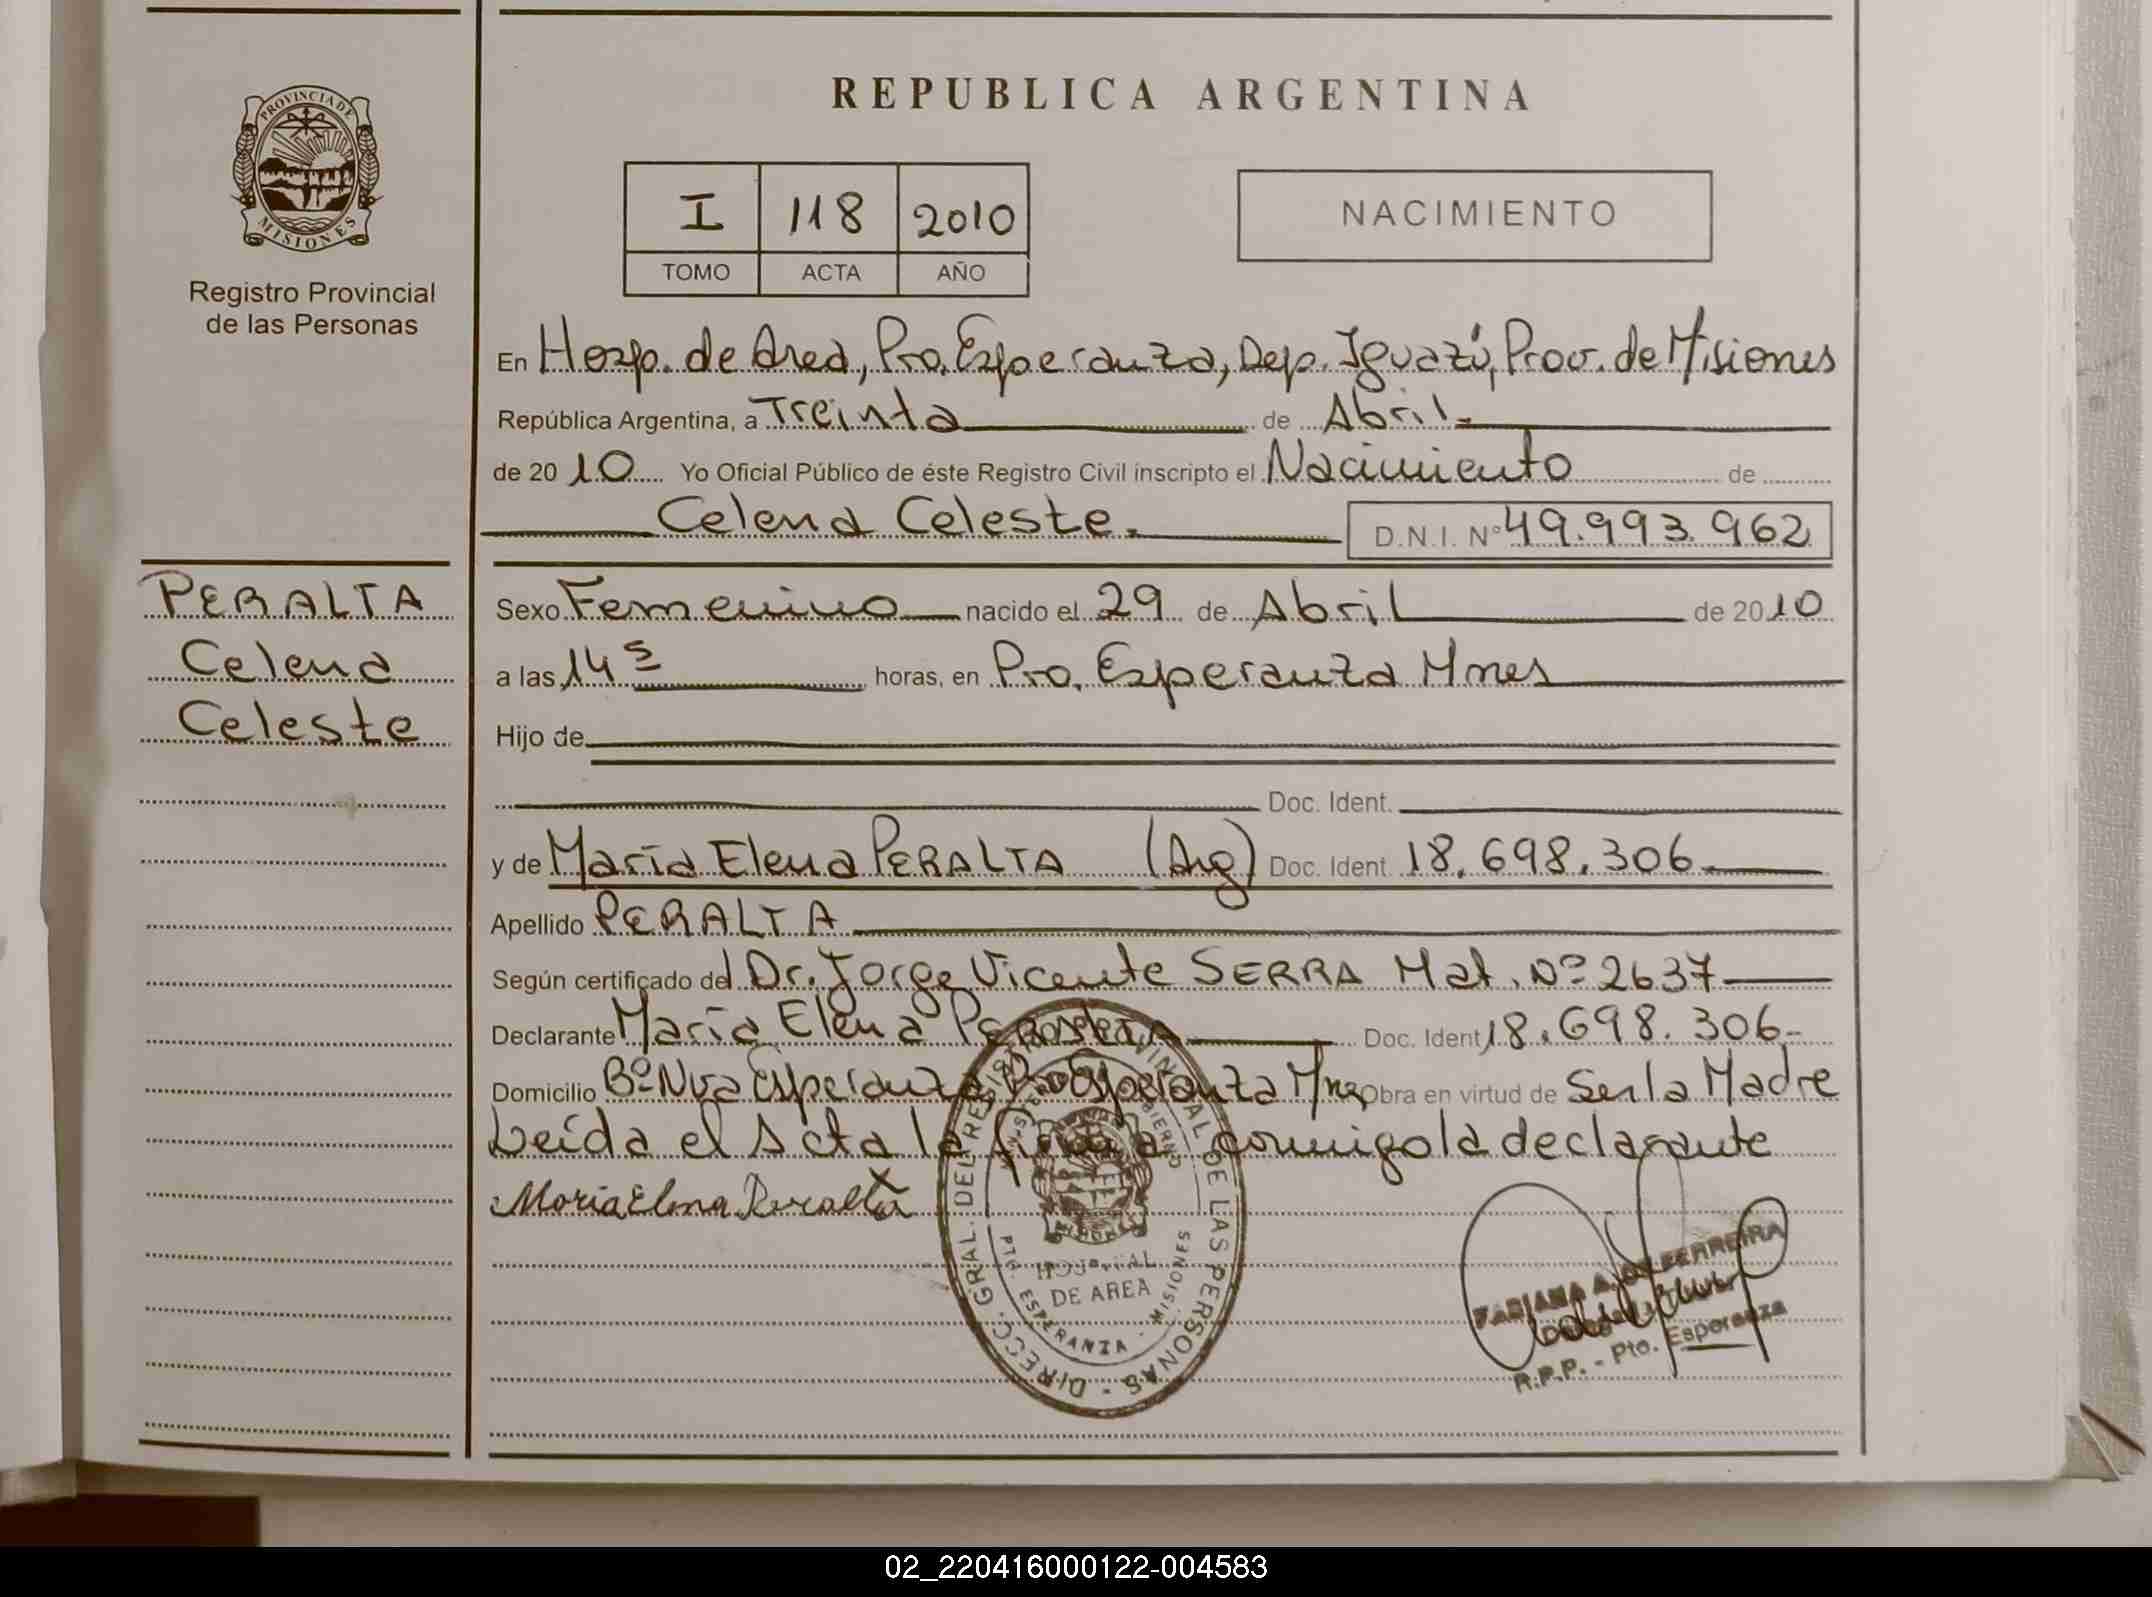 PROVINCIA DE
MISIONES
Registro Provincial
de las Personas
PERALTA
Celena
Celeste
REPUBLICA ARGENTINA
I 118 2010
TOMO ACTA AÑO
NACIMIENTO
En Hosp. de Area, Pto. Esperanza, Dep. Iguazú, Prov. de Misiones
República Argentina, a Treinta de Abril.
de 2010 Yo Oficial Público de éste Registro Civil inscripto el Nacimiento de
Celena Celeste. D.N.I. Nº 49.993.962
Sexo Femenino nacido el 29 de Abril de 2010
a las 14 horas, en Pto. Esperanza Mnes
Hijo de
Doc. Ident.
y de María Elena PERALTA (Arg) Doc. Ident. 18.698.306
Apellido PERALTA
Según certificado del Dr. Jorge Vicente SERRA Mat. Nº 2637
Declarante María Elena PERALTA Doc. Ident 18.698.306
Domicilio Bº Nva Esperanza Pto Esperanza Mnes Obra en virtud de Ser la Madre
Leída el Acta la firma conmigo la declarante
Maria Elena Peralta
DIRECC. GRAL. DEL REGISTRO PROVINCIAL DE LAS PERSONAS
HOSPITAL
DE AREA
PTO. ESPERANZA - MISIONES
FABIANA A. DE FERREIRA
R.P.P. - Pto. Esperanza
02_220416000122-004583